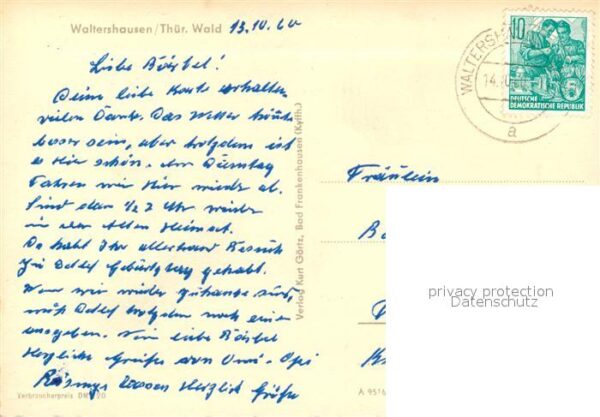 Waltershausen/Thür. Wald 13.10.60
Liebe Bärbel!
Deine liebe Karte erhalten
vielen Dank. Das Wetter könnte
besser sein, aber trotzdem ist
es hier schön. Am Dienstag
fahren wir hier wieder ab.
Sind dann ½ 7 Uhr wieder
in der Alten Heimat.
Da habt Ihr allerhand Besuch
zu Detlef Geburtstag gehabt.
Wenn wir wieder zuhause sind,
muß Detlef trotzdem noch einen
ausgeben. Nun liebe Bärbel
Herzliche Grüße von Omi - Opi
lassen Herzlich Grüße
Verbraucherpreis DM 0,20
Verlag Kurt Görtz, Bad Frankenhausen (Kyffh.)
WALTERSH
14.10.
a
10
DEUTSCHE
DEMOKRATISCHE REPUBLIK
Fräulein
Ba
K
A 9516
privacy protection
Datenschutz